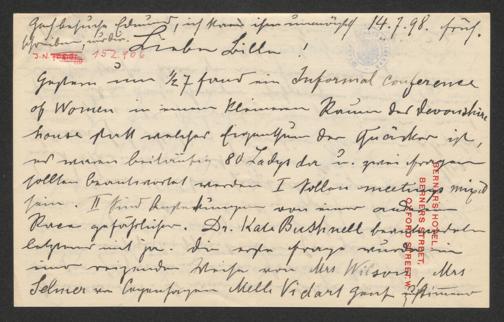 ich kann ihm unmöglich 14.7.98. früh.
schreiben
Lieber Lilli !
J.N. 152.906
Gestern um ½7 fand ein Informal conference
of Women in einem kleineren Raum des Devonshire
house statt welches Eigenthum der Quäcker ist,
es waren beiläufig 80 Ladys da u. zwei Fragen
sollten beantwortet werden I sollen meetings mixed
sein. II sind von einer anderen
Race gefährlicher. Dr. Kate Bushnell beantwortete
letzteres mit ja. die erste Frage wurde in
einer reizenden Weise von Mrs Wilson, Mrs
Selmer von Copenhagen Melle Vidart Genf
BERNERS HOTEL,
BERNERS STREET,
OXFORD STREET, W.